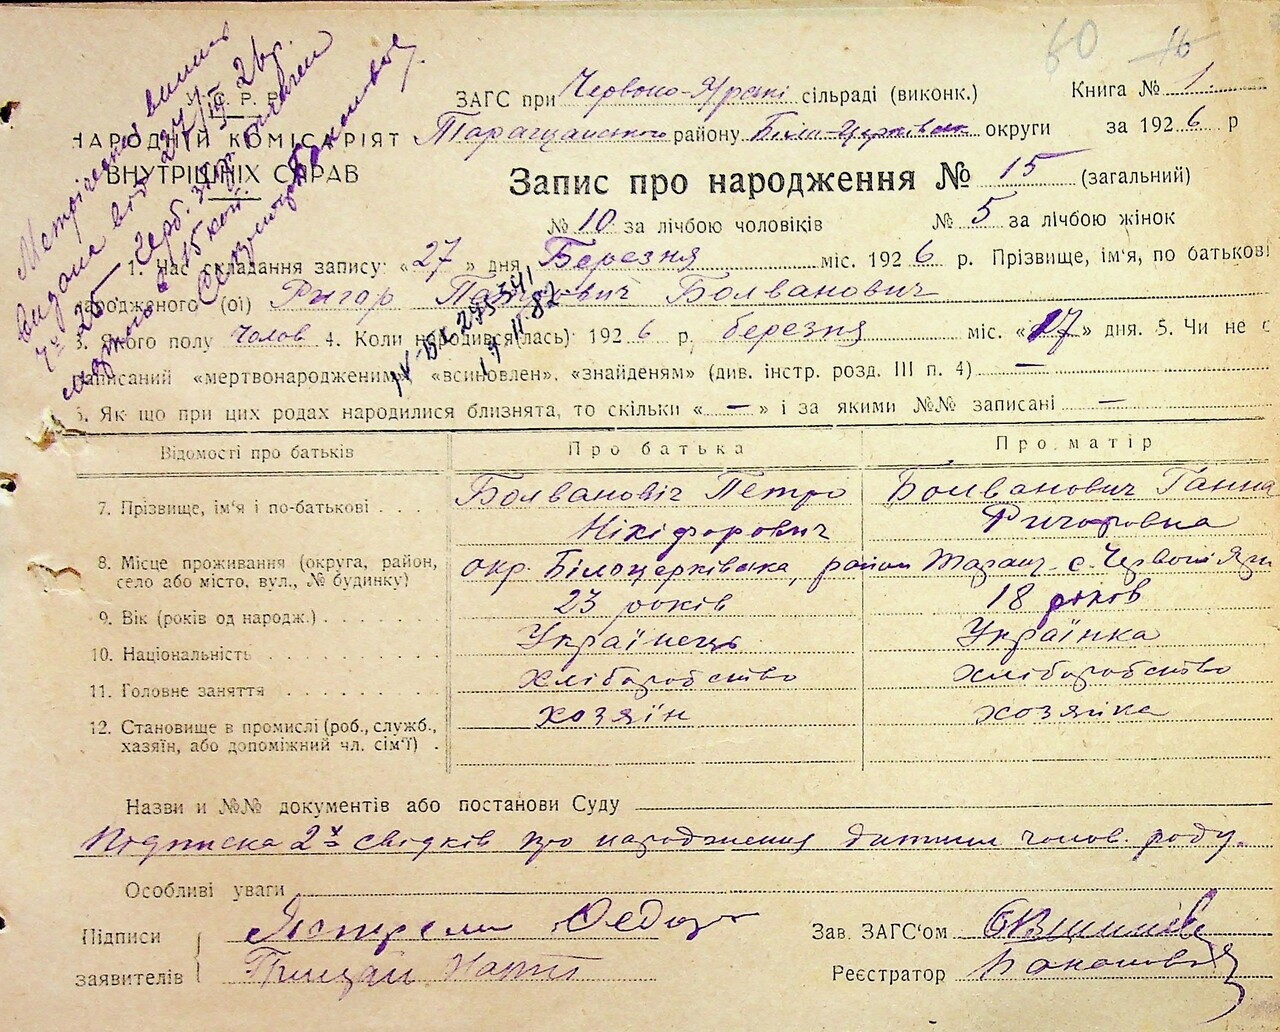 60 16
У. С. Р. Р.
НАРОДНІЙ КОМІСАРІЯТ
ВНУТРІШНІХ СПРАВ
ЗАГС при Червоно-Ярській сільраді (виконк.) Книга № 1
Таращанського району Біло-Церківськ округи за 1926 р
Запис про народження № 15 (загальний)
№ 10 за лічбою чоловіків № 5 за лічбою жінок
1. Час складання запису: «27» дня Березня міс. 1926 р. Прізвище, ім'я, по батькові
народженого (ої) Ригор Петрович Болванович
3. Якого полу Чолов 4. Коли народився(лась): 1926 р. березня міс. «17» дня. 5. Чи не є
записаний «мертвонародженим», «всиновлен», «знайденям» (див. інстр. розд. III п. 4) —
6. Як що при цих родах народилися близнята, то скільки «—» і за якими №№ записані —
Метрична випись
видана
IV-БК 275341
19 11 82
Відомості про батьків Про батька Про матір
7. Прізвище, ім'я і по-батькові . . . Болвановіч Петро Болванович Ганна
Нікіфорович Ригоровна
8. Місце проживання (округа, район, село або місто, вул., № будинку) окр. Білоцерківська, район Таращ. с. Червоні Яри
9. Вік (років од народж.) . . . . . . . 23 років 18 років
10. Національність . . . . . . . . . . Українець Українка
11. Головне заняття . . . . . . . . . хліборобство хліборобство
12. Становище в промислі (роб., службː, хозяїн хозяйка
хазяїн, або допоміжний чл. сім'ї) .
Назви и №№ документів або постанови Суду
Підписка 2х свідків про народження дитини чолов. роду.
Особливі уваги
Підписи Федор Зав. ЗАГС'ом
заявителів Реєстратор